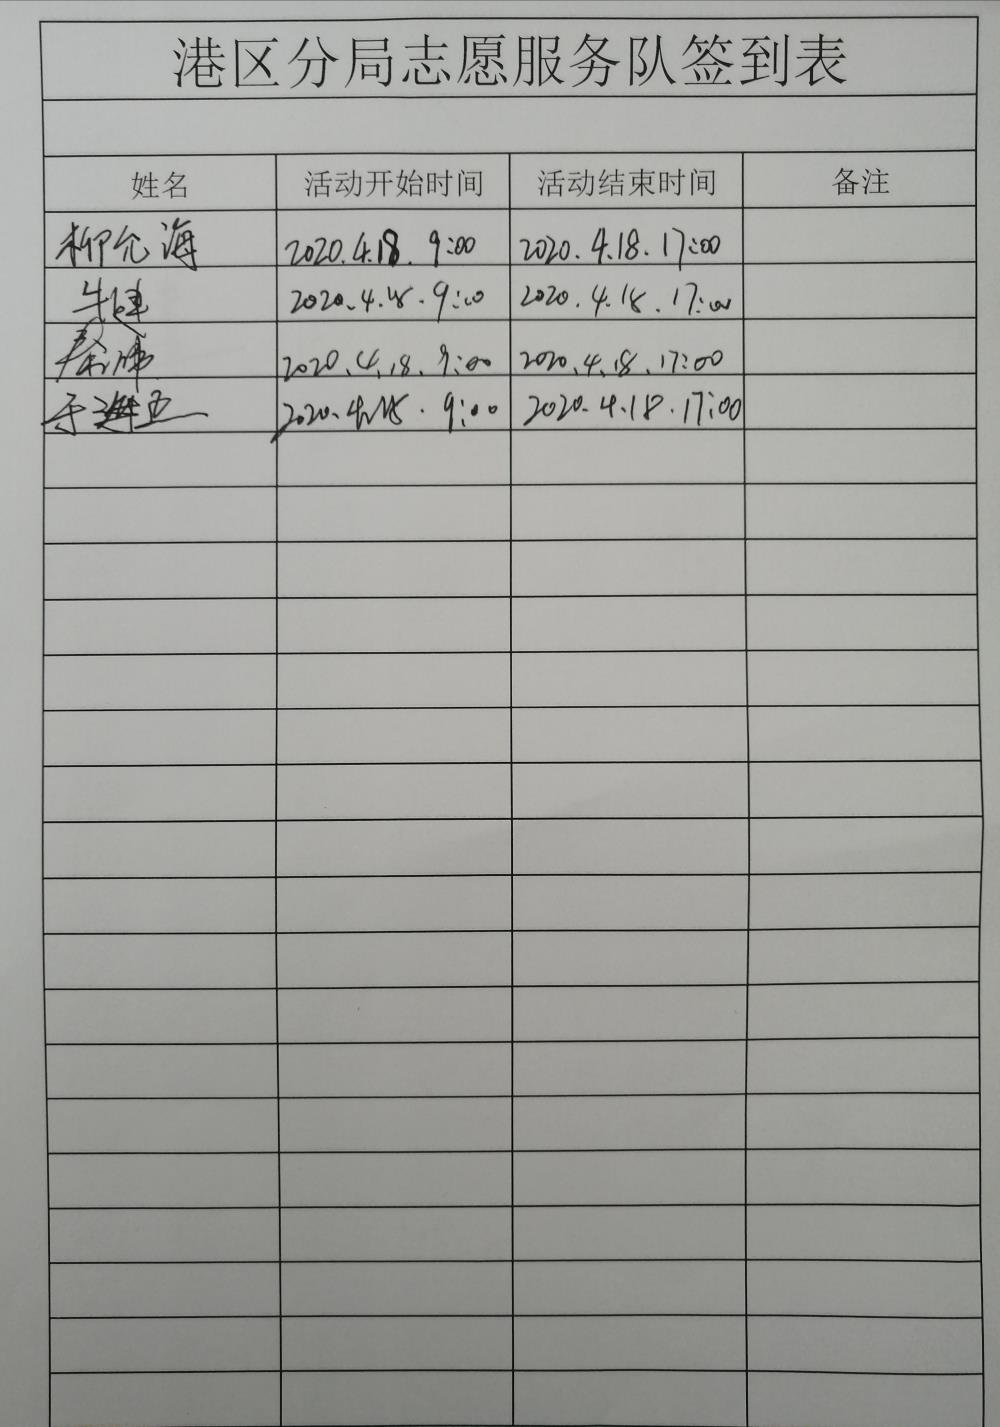 港区分局志愿服务队签到表
姓名 活动开始时间 活动结束时间 备注
柳允海 2020.4.18. 9:00 2020.4.18.17:00
牛健 2020.4.18.9:00 2020.4.18.17:00
秦伟 2020.4.18.9:00 2020.4.18.17:00
于 2020.4.18.9:00 2020.4.18.17:00